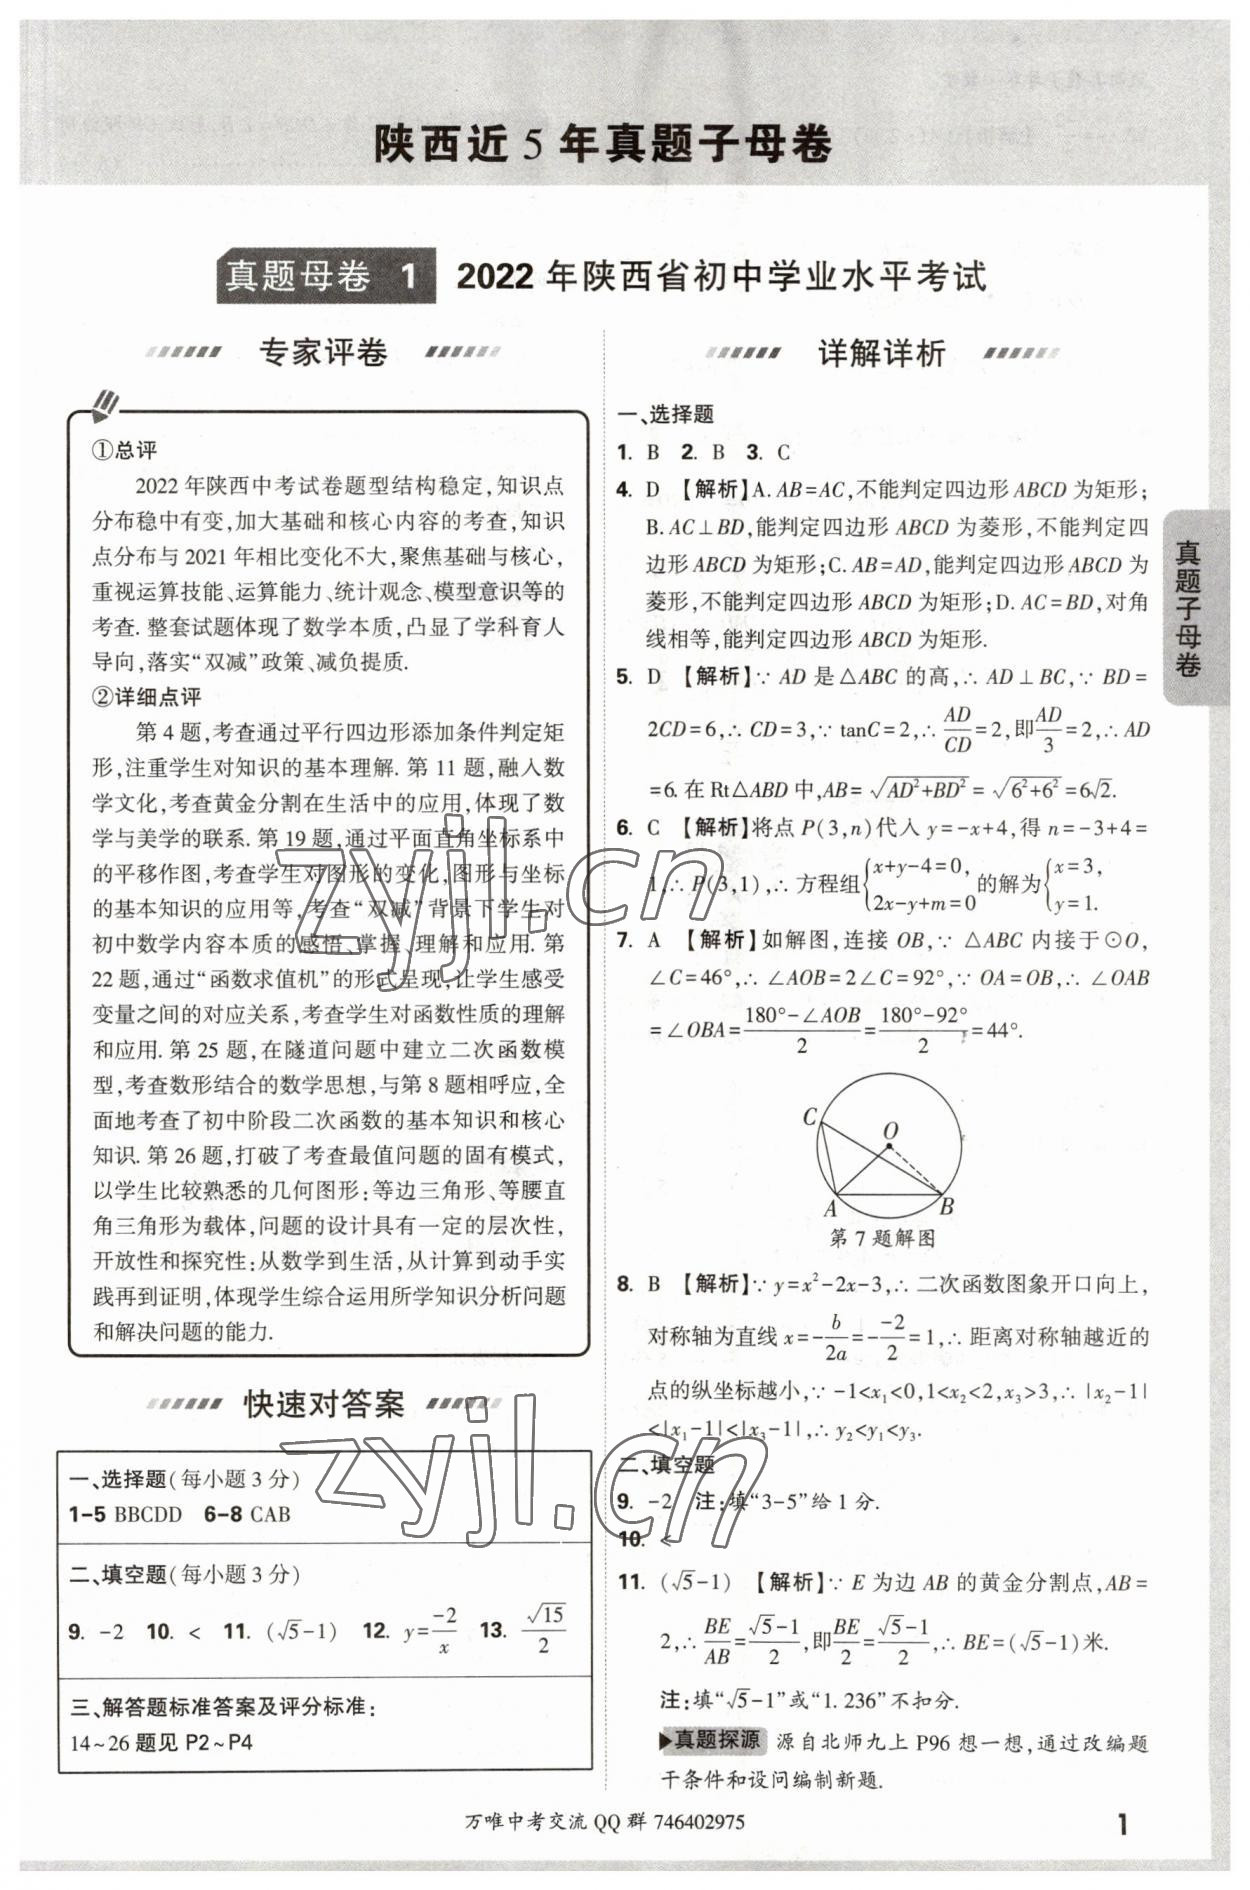 陕西近5年真题子母卷
真题母卷 1 2022年陕西省初中学业水平考试
专家评卷
①总评
2022年陕西中考试卷题型结构稳定,知识点
分布稳中有变,加大基础和核心内容的考查,知识
点分布与2021年相比变化不大,聚焦基础与核心,
重视运算技能、运算能力、统计观念、模型意识等的
考查. 整套试题体现了数学本质,凸显了学科育人
导向,落实“双减”政策、减负提质.
②详细点评
第4题,考查通过平行四边形添加条件判定矩
形,注重学生对知识的基本理解. 第11题,融入数
学文化,考查黄金分割在生活中的应用,体现了数
学与美学的联系. 第19题,通过平面直角坐标系中
的平移作图,考查学生对图形的变化,图形与坐标
的基本知识的应用等,考查“双减”背景下学生对
初中数学内容本质的感悟、掌握、理解和应用. 第
22题,通过“函数求值机”的形式呈现,让学生感受
变量之间的对应关系,考查学生对函数性质的理解
和应用. 第25题,在隧道问题中建立二次函数模
型,考查数形结合的数学思想,与第8题相呼应,全
面地考查了初中阶段二次函数的基本知识和核心
知识. 第26题,打破了考查最值问题的固有模式,
以学生比较熟悉的几何图形:等边三角形、等腰直
角三角形为载体,问题的设计具有一定的层次性,
开放性和探究性:从数学到生活,从计算到动手实
践再到证明,体现学生综合运用所学知识分析问题
和解决问题的能力.
快速对答案
一、选择题(每小题3分)
1-5 BBCDD 6-8 CAB
二、填空题(每小题3分)
9. -2 10. < 11. (√5-1) 12. y=-2/x 13. √15/2
三、解答题标准答案及评分标准:
14~26题见P2~P4
详解详析
一、选择题
1. B 2. B 3. C
4. D 【解析】A. AB=AC,不能判定四边形ABCD为矩形;
B. AC⊥BD,能判定四边形ABCD为菱形,不能判定四
边形ABCD为矩形;C. AB=AD,能判定四边形ABCD为
菱形,不能判定四边形ABCD为矩形;D. AC=BD,对角
线相等,能判定四边形ABCD为矩形.
5. D 【解析】∵AD是△ABC的高,∴AD⊥BC,∵BD=
2CD=6,∴CD=3,∵tanC=2,∴AD/CD=2,即AD/3=2,∴AD
=6. 在Rt△ABD中,AB=√(AD²+BD²)=√(6²+6²)=6√2.
6. C 【解析】将点P(3,n)代入y=-x+4,得n=-3+4=
1,∴P(3,1),∴方程组{x+y-4=0, 2x-y+m=0的解为{x=3, y=1.
7. A 【解析】如解图,连接OB,∵△ABC内接于⊙O,
∠C=46°,∴∠AOB=2∠C=92°,∵OA=OB,∴∠OAB
=∠OBA=(180°-∠AOB)/2=(180°-92°)/2=44°.
C
O
A
B
第7题解图
8. B 【解析】∵y=x²-2x-3,∴二次函数图象开口向上,
对称轴为直线x=-b/2a=--2/2=1,∴距离对称轴越近的
点的纵坐标越小,∵-1<x₁<0,1<x₂<2,x₃>3,∴|x₂-1|
<|x₁-1|<|x₃-1|,∴y₂<y₁<y₃.
二、填空题
9. -2 注:填“3-5”给1分.
10. <
11. (√5-1) 【解析】∵E为边AB的黄金分割点,AB=
2,∴BE/AB=(√5-1)/2,即BE/2=(√5-1)/2,∴BE=(√5-1)米.
注:填“√5-1”或“1.236”不扣分.
▶真题探源 源自北师九上P96想一想,通过改编题
干条件和设问编制新题.
真题子母卷
万唯中考交流QQ群746402975
1
zyjl.cn
zyjl.cn